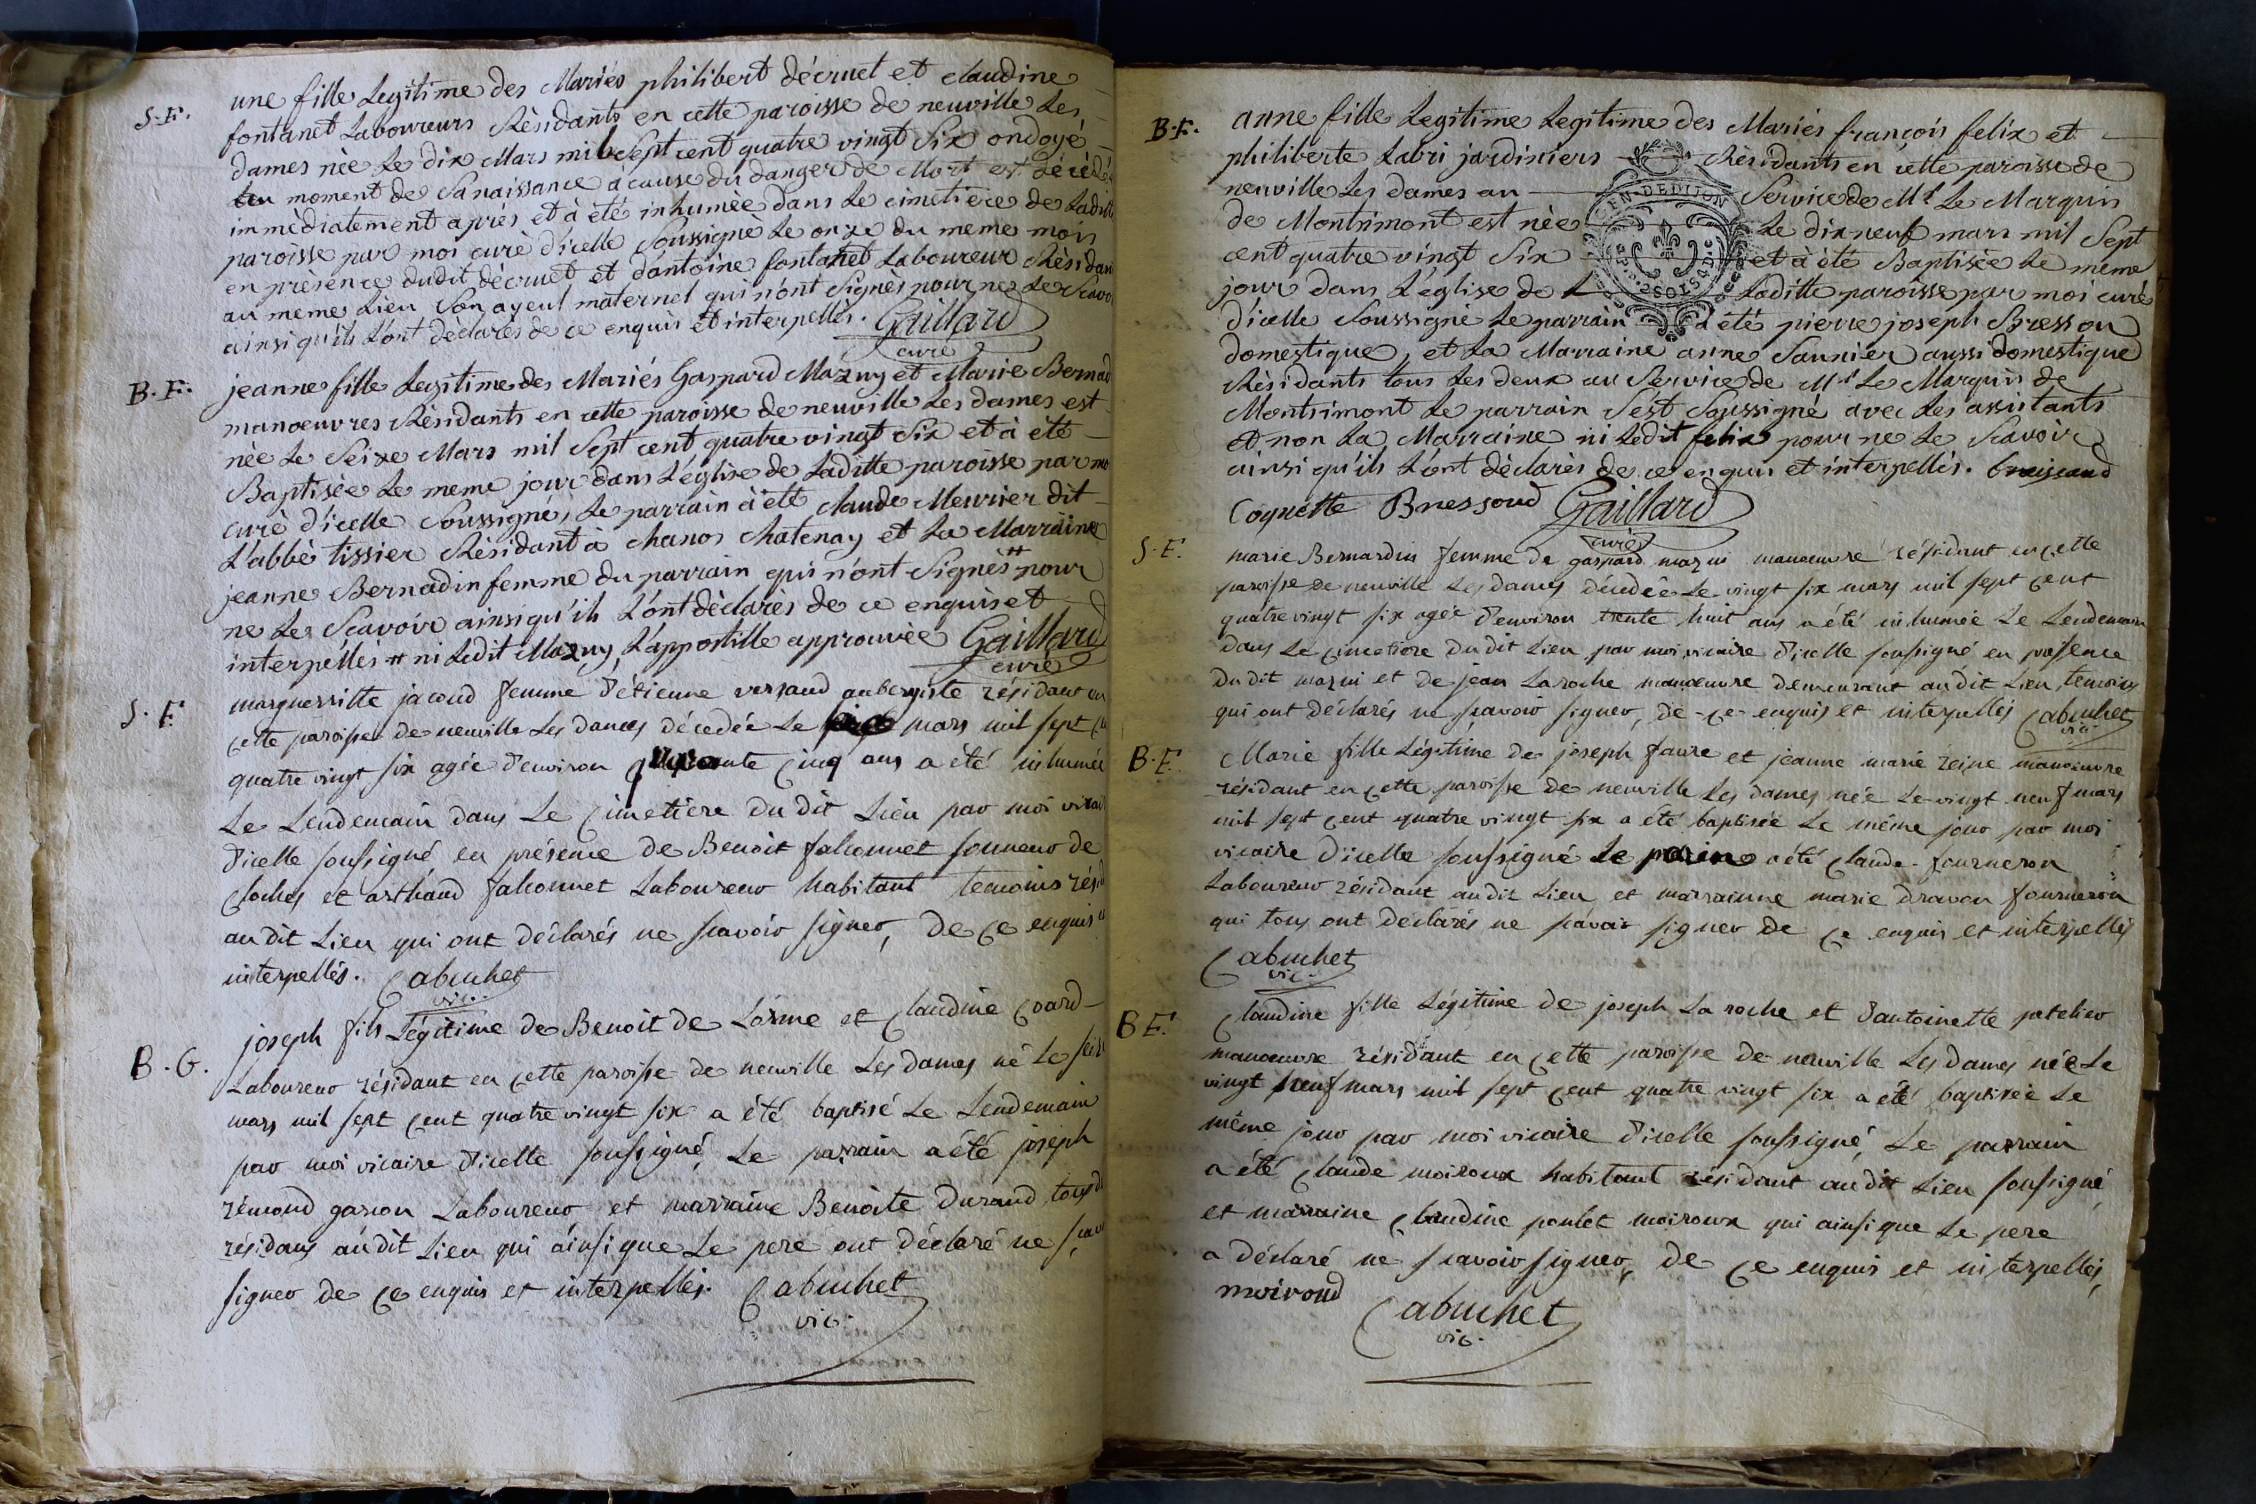 S.F.
une fille Legitime des Mariés philibert décruet et claudine
fontanet Laboureurs Rèsidants en cette paroisse de neuville Les
dames née Le dix Mars mil Sept cent quatre vingt Six ondoyé
au moment de Sa naissance à cause du danger de Mort est dècèdé
immèdiatement aprés et à été inhumèe dans Le cimetiere de Laditte
paroisse par moi curè d'icelle Soussignè Le onze du meme mois
en prèsence dudit décruet et d'antoine fontanet Laboureur Rèsidant
au meme Lieu Son ayeul maternel qui n'ont Signès pour ne Le Scavoir
ainsi qu'ils L'ont dèclarès de ce enquis et interpellès. Gaillard
curé
B.F.
jeanne fille Legitime des Mariés Gaspard Mazuy et Marie Bernad
manoeuvres Rèsidants en cette paroisse de neuville Les dames est
nèe Le Seize Mars mil Sept cent quatre vingt Six et à été
Baptisèe Le meme jour dans L'église de Laditte paroisse par moi
curè d'icelle Soussigné, Le parrain à été claude Meunier dit
L'abbè tissier Rèsidant à chanos chatenay et La Marraine
jeanne Bernadin femme du parrain qui n'ont Signès # pour
ne Le Scavoir ainsi qu'ils L'ont dèclarès de ce enquis et
interpellès # ni Ledit Mazuy, L'appostille approuvèe Gaillard
curé
S.F.
marguerritte jacoud femme d'étienne versaud aubergiste résidant en
cette paroisse de neuville Les dames décedée Le mars mil sept
quatre vingt six agée d'environ cinq ans a été inhumée
Le Lendemain dans Le cimetiere du dit Lieu par moi vicaire
d'icelle soussigné en présence de Benoit falconnet sonneur de
cloches et arthaud falconnet Laboureur habitant temoins
au dit Lieu qui ont déclarés ne scavoir signer, de ce enquis et
interpellés. Cabuchet
vic.
B.G.
joseph fils Légitime de Benoit de Lorme et Claudine
Laboureur résidant en cette paroisse de neuville Les dames né Le seize
mars mil sept cent quatre vingt six a été baptisé Le Lendemain
par moi vicaire d'icelle soussigné, Le parrain a été joseph
rémond garcon Laboureur et marraine Benoite Durand tous
résidans au dit Lieu qui ainsi que Le pere ont déclaré ne scavoir
signer de ce enquis et interpellés. Cabuchet
vic.
B.F.
anne fille Legitime Legitime des Mariés françois felix et
philiberte Labri jardiniers Rèsidants en cette paroisse de
neuville Les dames au Service de Mr Le Marquis
de Montrimont est nèe Le dix neuf mars mil Sept
cent quatre vingt Six et à été Baptisèe Le mème
jour dans L'église de Laditte paroisse par moi curé
GEN. DE DIJON
2 SOLS
d'icelle Soussignè Le parrain à été pierre joseph Bressou
domestique, et La Marraine anne Saunier aussi domestique
Rèsidants tous Les deux au Service de Mr Le Marquis de
Montrimont Le parrain S'est Soussigné avec Les assistants
et non La Marraine ni Ledit felix pour ne Le Scavoir
ainsi qu'ils L'ont dèclarès de ce enquis et interpellés.
Coquette Bressoud Gaillard
curé
S.F.
marie Bernardin femme de gaspard mazui manoeuvre résidant en cette
paroisse de neuville Les dames décedée Le vingt six mars mil sept cent
quatre vingt six agée d'environ trente huit ans a été inhumée Le Lendemain
dans Le cimetiere du dit Lieu par moi vicaire d'icelle soussigné en présence
du dit mazui et de jean Laroche manoeuvre demeurant au dit Lieu, temoins
qui ont déclarés ne scavoir signer, de ce enquis et interpellés Cabuchet
vic
B.F.
Marie fille Légitime de joseph faure et jeanne marie réine manoeuvre
résidant en cette paroisse de neuville Les dames née Le vingt neuf mars
mil sept cent quatre vingt six a été baptisée Le même jour par moi
vicaire d'icelle soussigné Le parrin a été claude fourneron
Laboureur résidant au dit Lieu et marrainne marie fourneron
qui tous ont déclarés ne scavoir signer de ce enquis et interpellés
Cabuchet
vic.
B F.
Claudine fille Légitime de joseph La roche et d'antoinette
manoeuvre résidant en cette paroisse de neuville Les dames née Le
vingt neuf mars mil sept cent quatre vingt six a été baptisée Le
même jour par moi vicaire d'icelle soussigné, Le parrain
a été claude moiroux habitant résidant au dit Lieu soussigné,
et marraine Claudine poulet moiroux qui ainsi que Le pere
a déclaré ne scavoir signer, de ce enquis et interpellés,
moiroud Cabuchet
vic.